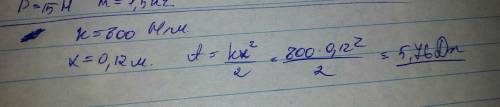 P = 15 H m = 1,5 кг.
к = 800 Н/м.
x = 0,12 м. A = kx²/2 = 800 · 0,12²/2 = 5,76 Дж